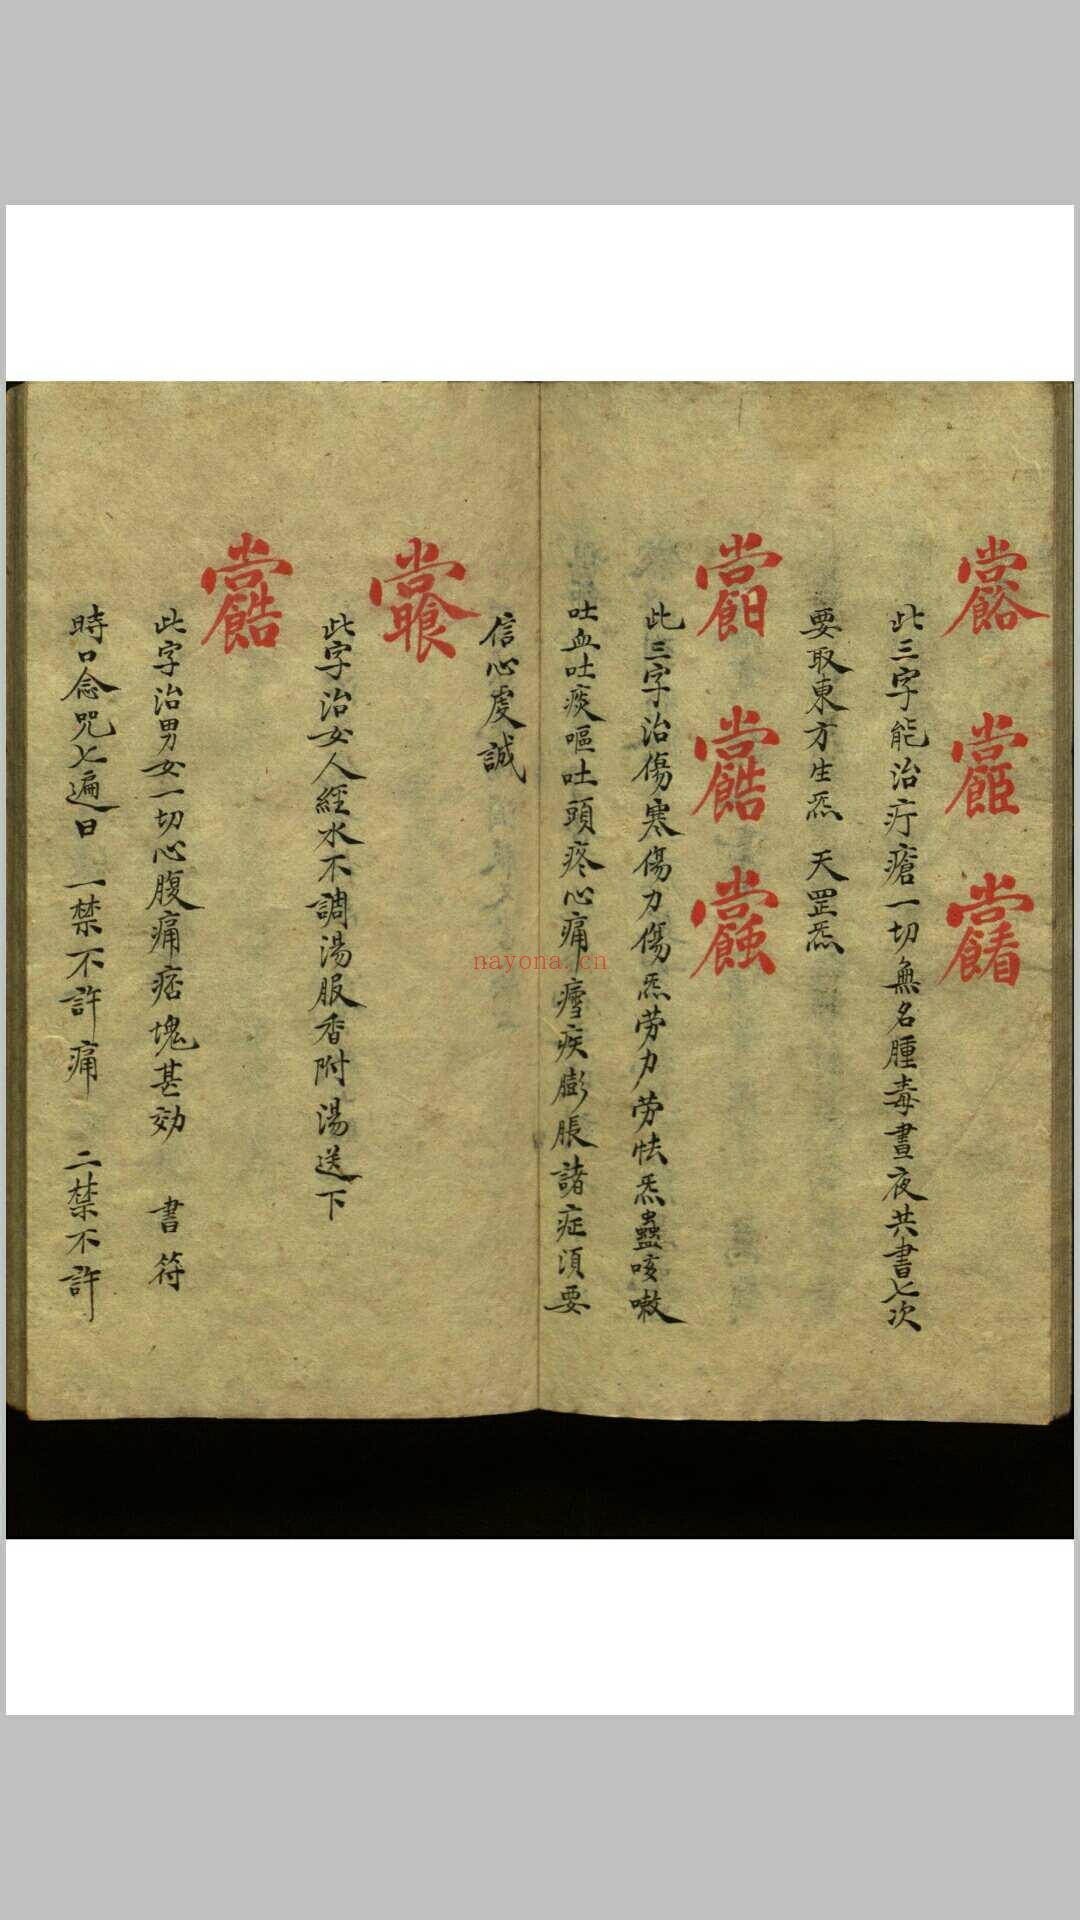 此三字能治疔瘡一切無名腫毒晝夜共書七次
要取東方生炁 天罡炁
此三字治傷寒傷力傷炁劳力劳怯炁蠱咳嗽
吐血吐痰嘔吐頭疼心痛 疾膨脹諸症須要
信心虔誠
此字治女人經水不調湯服香附湯送下
此字治男女一切心腹痛痞塊甚効 書符
時口念咒七遍曰 一禁不許痛 二禁不許
nayona.cn